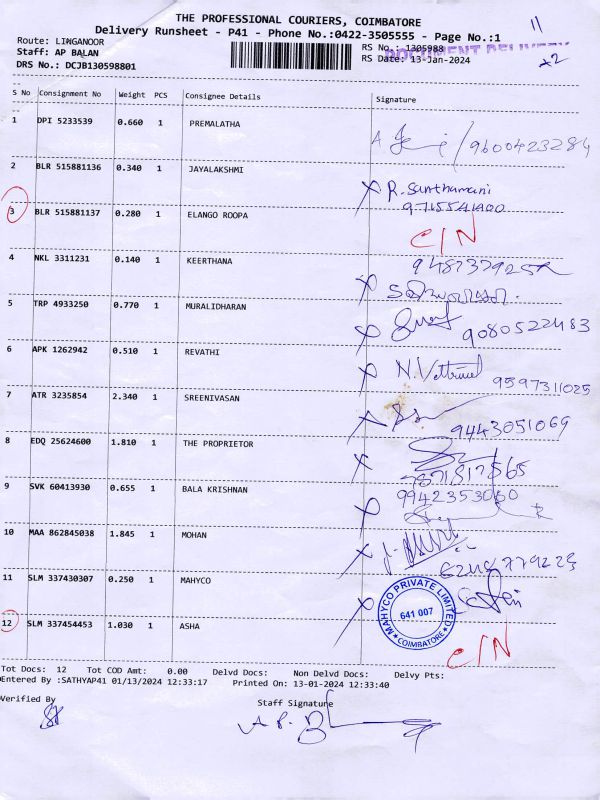 THE PROFESSIONAL COURIERS, COIMBATORE
Delivery Runsheet - P41 - Phone No.:0422-3505555 - Page No.:1
11
Route: LINGANOOR
RS No.: 1305988
DOCUMENT DELIVERY
Staff: AP BALAN
RS Date: 13-Jan-2024
x2
DRS No.: DCJB130598801
S No Consignment No Weight PCS Consignee Details Signature
1 DPI 5233539 0.660 1 PREMALATHA
9600423284
2 BLR 515881136 0.340 1 JAYALAKSHMI
R. Santhamani
3 BLR 515881137 0.280 1 ELANGO ROOPA
C/N
4 NKL 3311231 0.140 1 KEERTHANA
5 TRP 4933250 0.770 1 MURALIDHARAN
9080522483
6 APK 1262942 0.510 1 REVATHI
9597311025
7 ATR 3235854 2.340 1 SREENIVASAN
9443051069
8 EDQ 25624600 1.810 1 THE PROPRIETOR
9 SVK 60413930 0.655 1 BALA KRISHNAN
10 MAA 862845038 1.845 1 MOHAN
11 SLM 337430307 0.250 1 MAHYCO
MAHYCO PRIVATE LIMITED
641 007
COIMBATORE
12 SLM 337454453 1.030 1 ASHA
C/N
Tot Docs: 12 Tot COD Amt: 0.00 Delvd Docs: Non Delvd Docs: Delvy Pts:
Entered By :SATHYAP41 01/13/2024 12:33:17 Printed On: 13-01-2024 12:33:40
Verified By
Staff Signature
A.P.B